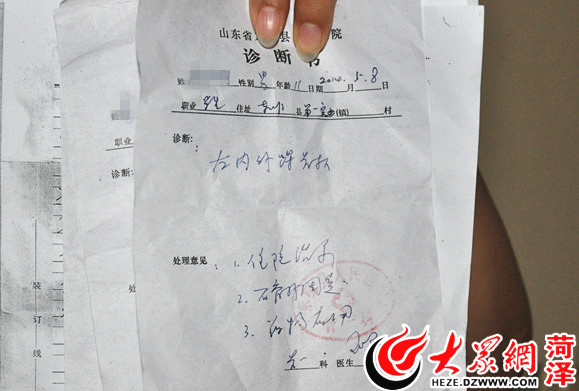 山东省 县 院
诊断书
姓 性别 男 年龄 11 日期 2014 年 5 月 8 日
职业 学生 住址 县 第一实小 (镇) 村
诊断:
左内外踝骨折
处理意见: 1. 住院治疗
2. 石膏外固定
3. 药物应用
科 医生
职业
诊断:
处
装订线
大众網 菏泽
HEZE.DZWWW.COM